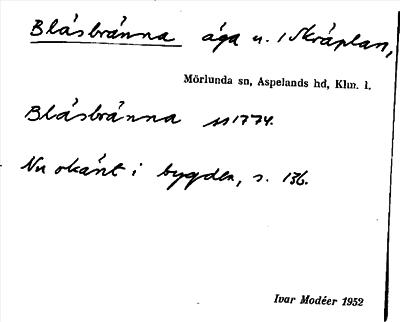 Blåsbränna äga u. Skräplan,
Mörlunda sn, Aspelands hd, Klm. l.
Blåsbränna 1774.
Nu okänt i bygden, s. 136.
Ivar Modéer 1952